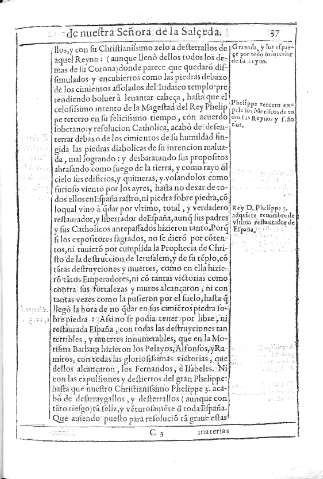 de nuestra Señora de la Salçeda. 37
llos, y con su Christianismo zelo a desterrallos de
aquel Reyno: (aunque lleno dellos todos los de-
mas de su Corona) donde parece que quedarõ dis-
simulados y encubiertos como las piedras debaxo
de los cimientos assolados del Iudaico templo: pre-
tendiendo boluer à leuantar cabeça, hasta que el
celosissimo intento de la Magestad del Rey Phelip
pe tercero en su felicissimo tiempo, con acuerdo
loborano y resolucion Catholica, acabò de deste-
rrar debaxo de los cimientos de su humildad fin-
gida las piedras diabolicas de su intencion malua-
da, mal logrando: y desbaratando sus propositos
abrasando como fuego de la tierra, y como rayo dl
cielo sus edificios, y quimeras, y volandolos como
furioso viento por los ayres, hasta no dexar de to-
dos ellos en España rastro, ni piedra sobre piedra, cõ
lo qual vino à qdar por vltimo, total, y verdadero
restaurador, y libertador de España, aunq sus padres
y sus Catholicos antepassados hizieron tanto. Porq
si los expositores sagrados, no se dierõ por cõten-
tos, ni tuuierõ por cumplida la Prophecia de Chris-
to de la destruccion de Ierusalem, y de su tẽplo, cõ
tãtas destruyciones y muertes, como en ella hizie-
rõ tãtos Emperadores, ni cõ tantas victorias como
contra sus fortalezas y muros alcançaron; ni con
tantas vezes como la pusieron por el suelo, hasta q
llegò la hora de no qdar en sus cimiẽtos piedra so-
bre piedra: Assi no se podia tener por libre, ni
restaurada España, con todas las destruyciones tan
terribles, y muertes innumerables, que en la Mo-
risma Barbara hizieron los Pelayos, Alfonsos, y Ra-
miros, con todas las gloriosissimas victorias, que
dellos alcançaron, los Fernandos, è Isabeles. Ni
con las expulsiones y destierros del gran Phelippe:
hasta que nuestro Christianissimo Phelippe 3. aca-
bò de desterrallos (aunque con
tãto riesgo) tã feliz, y vẽturosamẽte d toda España.
Que auiendo puesto para resoluciõ tã graue estas
C 5 materias
Granada, y sus
de su Reyno.
Phelippe tercero ex-
pele los Moriscos de to
dos sus Reynos y
rios.
Rey D. Phelippe 3.
adquiere renombre de
vltimo restaurador de
España.